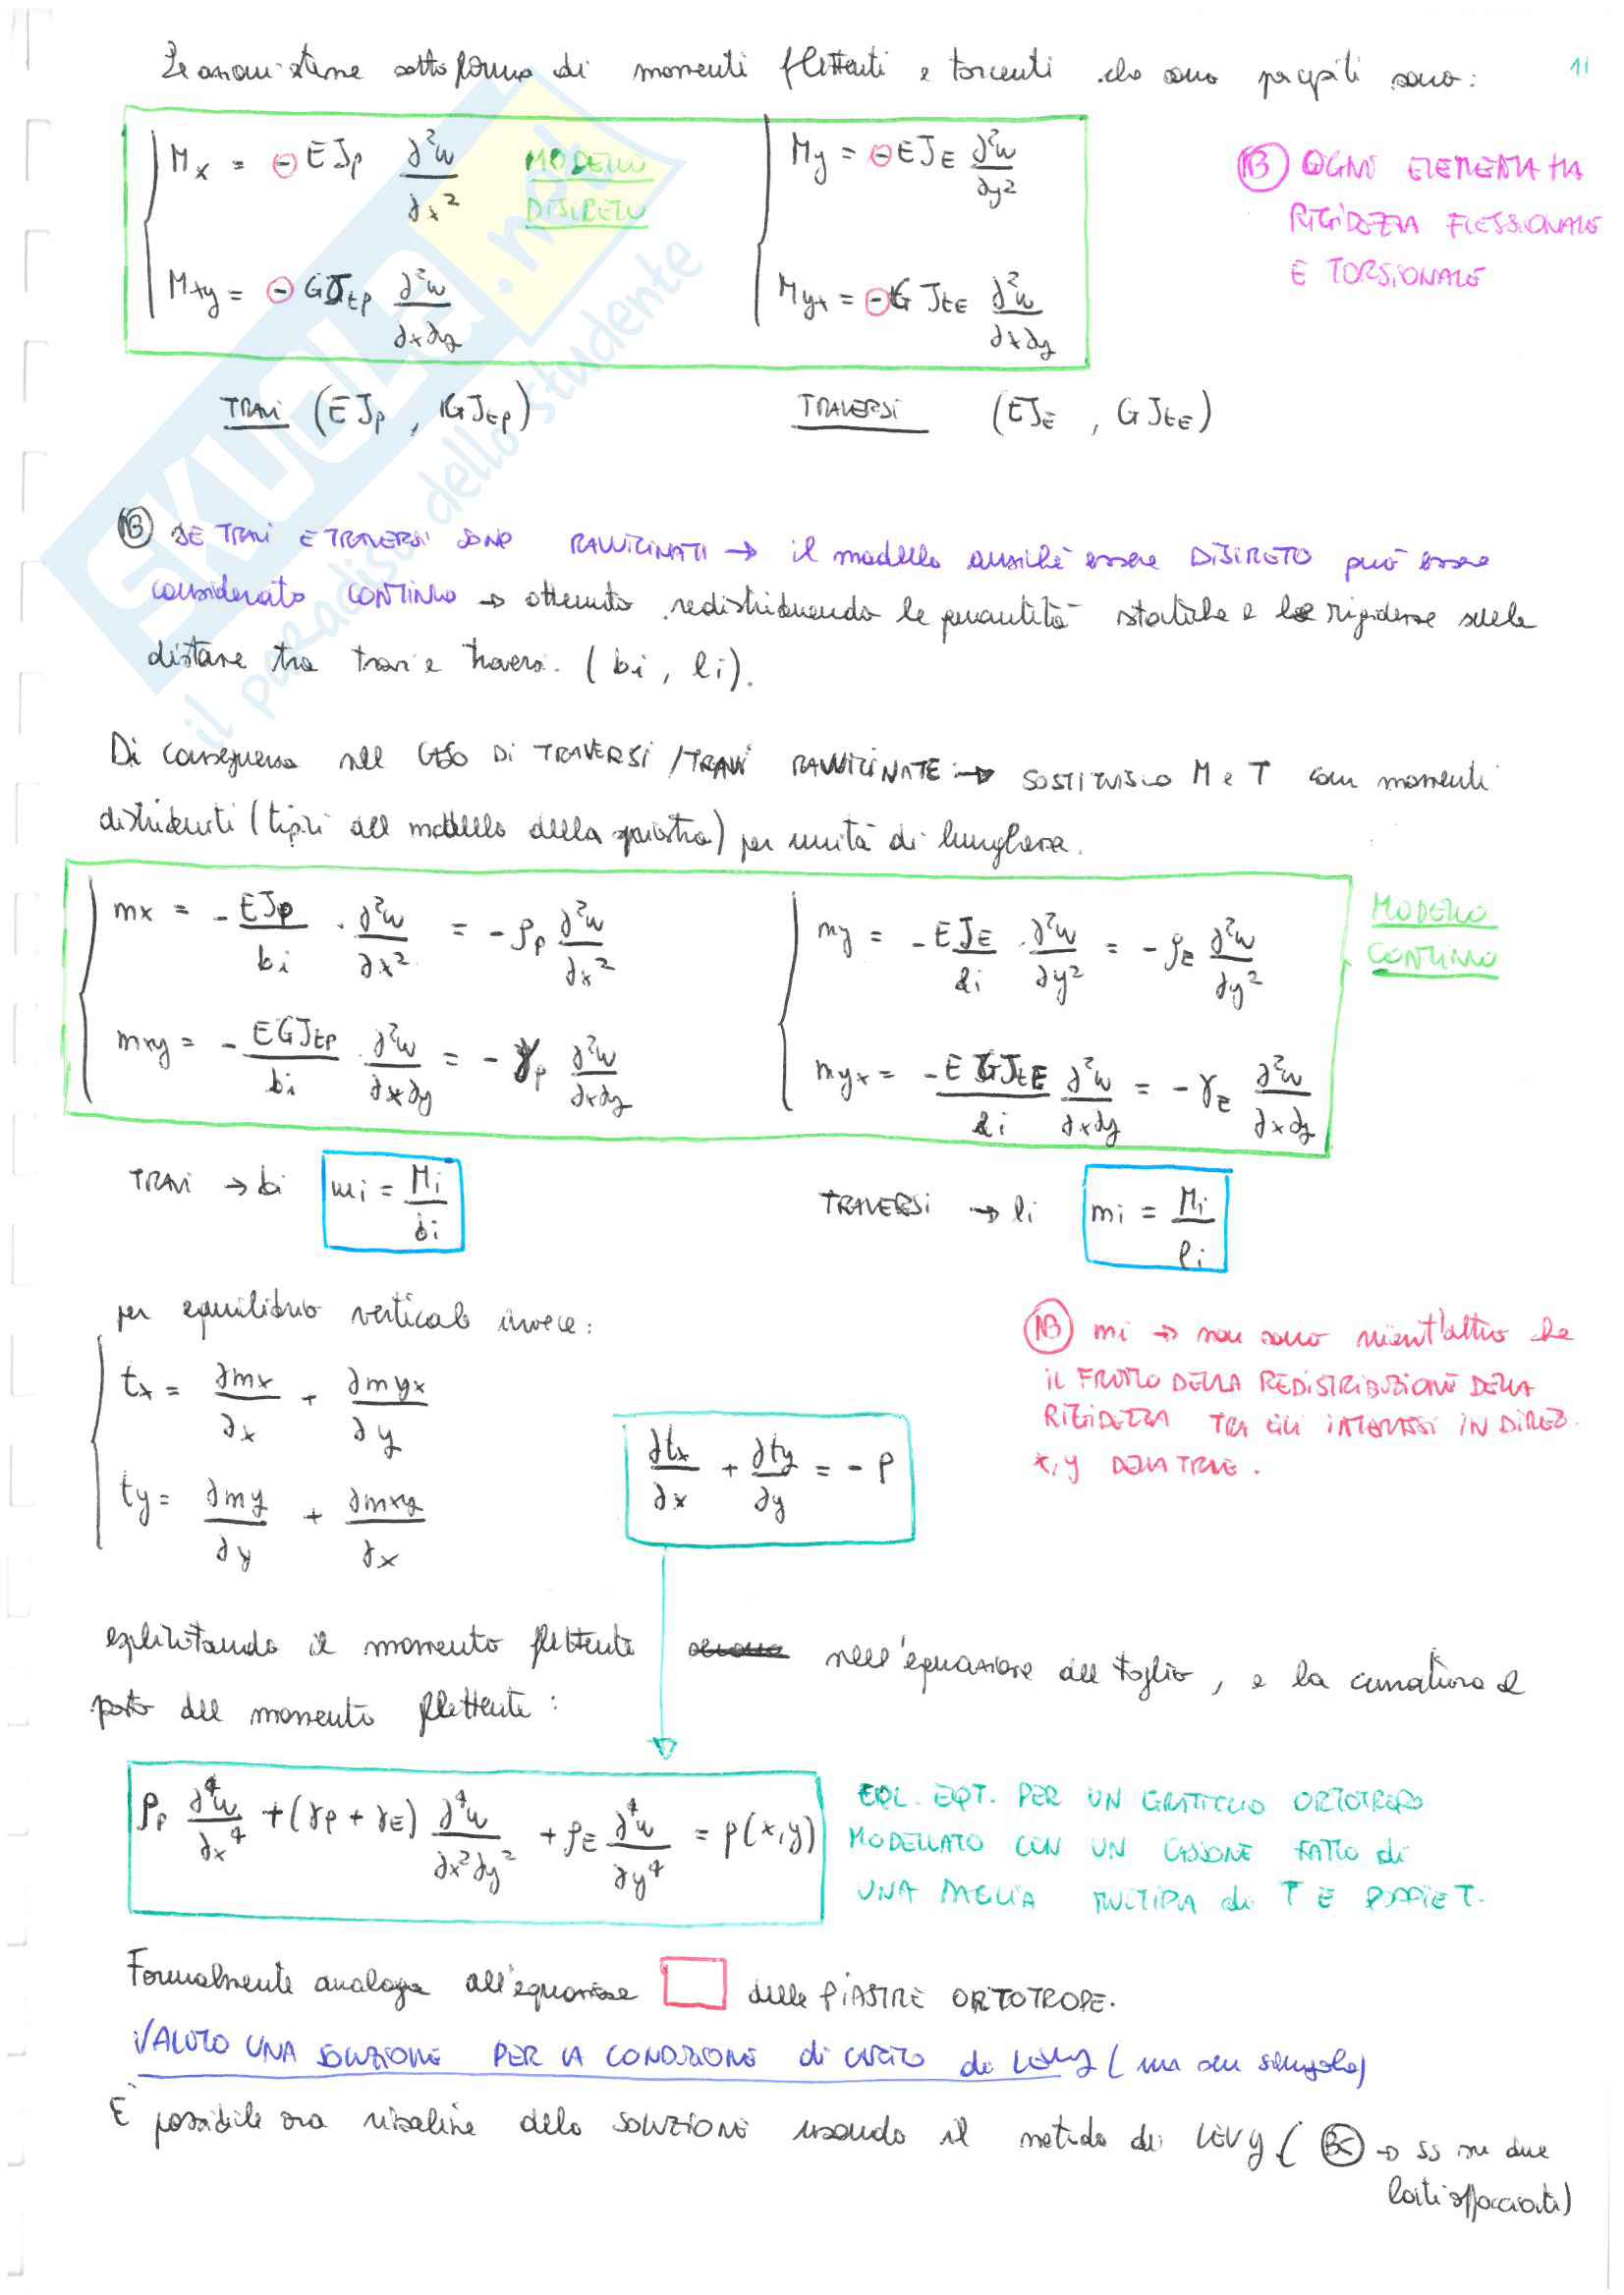 sotto forma di momenti flettenti e torcenti che sono sono: 11
Mx = - EJp ∂²w/∂x² MODELLO DISCRETO My = - EJE ∂²w/∂y²
Mxy = - GJtp ∂²w/∂x∂y Myx = - G JtE ∂²w/∂x∂y
NB OGNI ELEMENTO HA
RIGIDEZZA FLESSIONALE
E TORSIONALE
TRAVI (EJp, GJtp) TRAVERSI (EJE, GJtE)
NB SE TRAVI E TRAVERSI SONO RAVVICINATI → il modello anziché essere DISCRETO può essere
considerato CONTINUO → ottenuto redistribuendo le quantità statiche e le rigidezze sulle
distanze tra travi e traversi. (bi, li).
Di conseguenza nel CASO DI TRAVERSI/TRAVI RAVVICINATE → SOSTITUISCO M e T con momenti
distribuiti (tipici del modello della piastra) per unità di lunghezza.
mx = - EJp/bi · ∂²w/∂x² = - ρp ∂²w/∂x² my = - EJE/li · ∂²w/∂y² = - ρE ∂²w/∂y²
MODELLO
CONTINUO
mxy = - EGJtp/bi · ∂²w/∂x∂y = - γp ∂²w/∂x∂y myx = - EGJtE/li ∂²w/∂x∂y = - γE ∂²w/∂x∂y
TRAVI → bi mi = Mi/bi TRAVERSI → li mi = Mi/li
per equilibrio verticale invece:
tx = ∂mx/∂x + ∂myx/∂y
ty = ∂my/∂y + ∂mxy/∂x
∂tx/∂x + ∂ty/∂y = - p
NB mi → non sono nient'altro che
IL FRUTTO DELLA REDISTRIBUZIONE DELLA
RIGIDEZZA TRA GLI INTERASSI IN DIREZ.
x, y DELLA TRAVE.
esplicitando il momento flettente nell'equazione del taglio, e la curvatura al
posto del momento flettente:
ρp ∂⁴w/∂x⁴ + (γp + γE) ∂⁴w/∂x²∂y² + ρE ∂⁴w/∂y⁴ = p(x,y)
EQL. EQT. PER UN GRATICCIO ORTOTROPO
MODELLATO CON UN CASSONE FATTO di
UNA MAGLIA MULTIPLA di T E DOPPIE T.
Formalmente analoga all'equazione delle PIASTRE ORTOTROPE.
VALUTO UNA SOLUZIONE PER LA CONDIZIONE di CARICO di LEVY (ma con singola)
E' possibile ora risalire alla SOLUZIONE usando il metodo di LEVY (BC → SS su due
lati affacciati)
SKUOLA.net
il paradiso dello studente